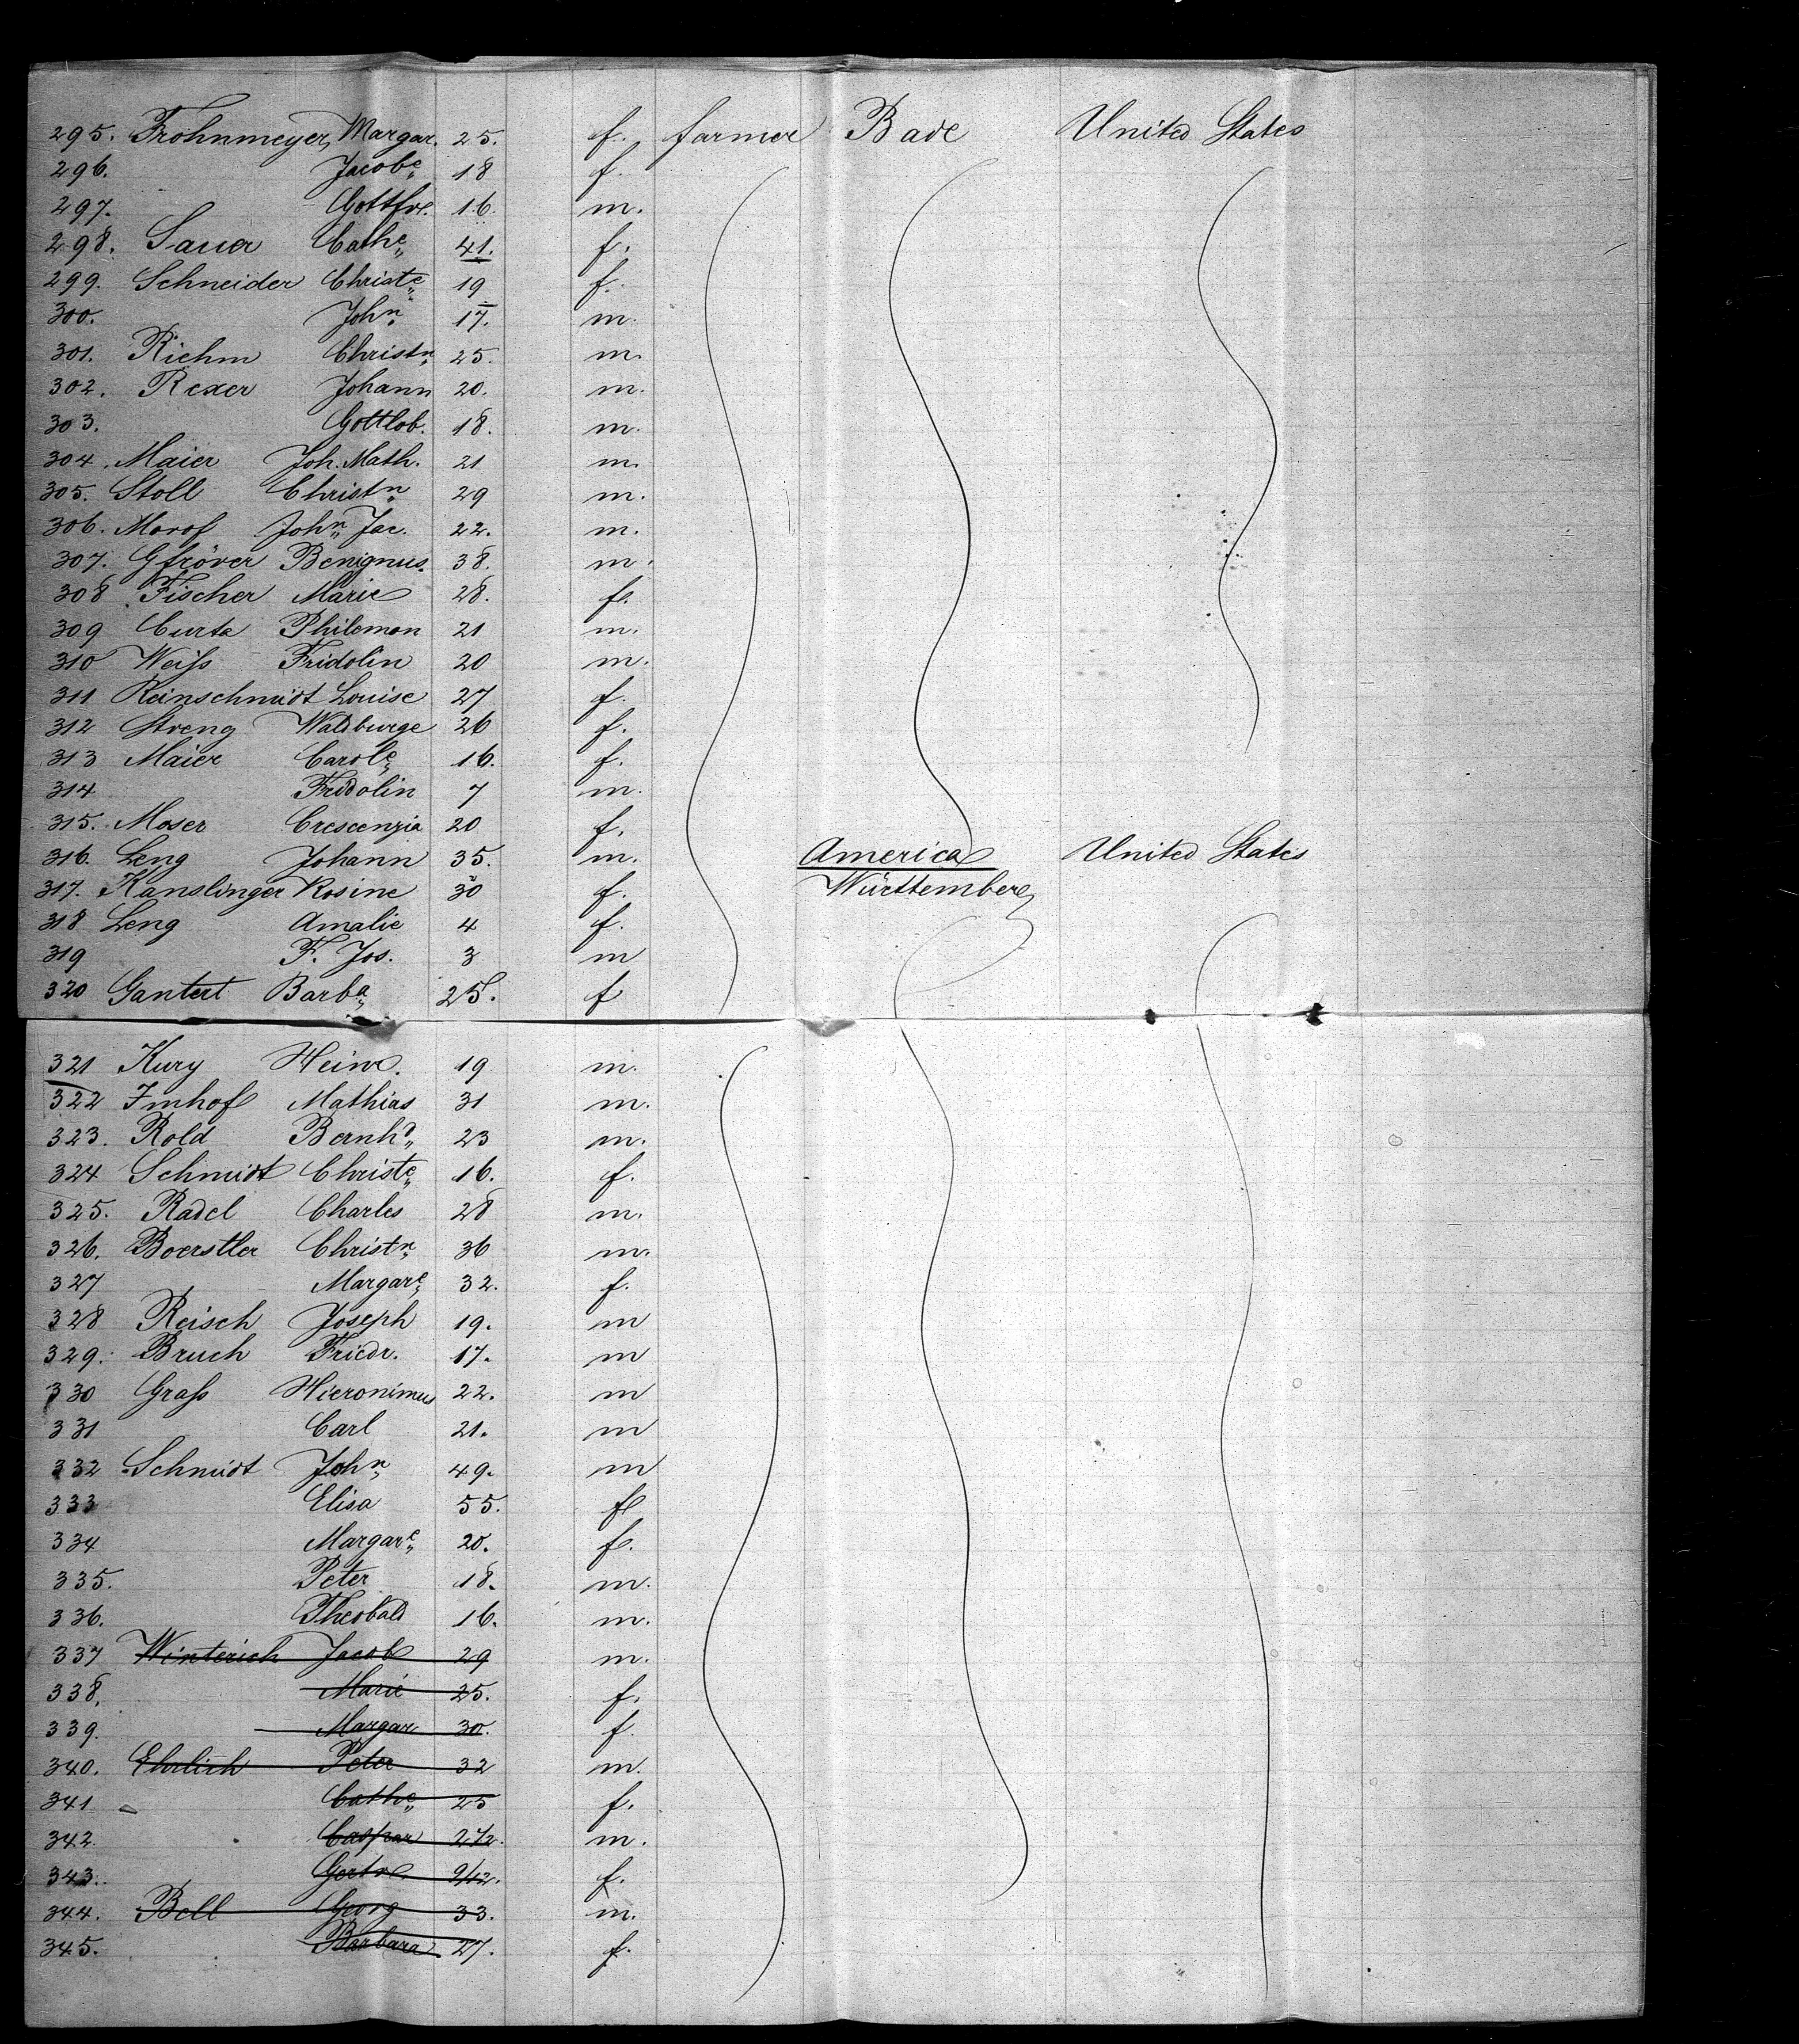 295. Frohnmeyer, Margar. 25. f. farmer Bade United States
296. Jacobe 18 f.
297. Gottfr. 16. m.
298. Sauer Cathe 41. f.
299. Schneider Christe 19 f.
300. John 17. m.
301. Riehm Christn 25. m.
302. Rexer Johann 20. m.
303. Gottlob. 18. m.
304. Maier Joh. Math. 21 m.
305. Stoll Christn 29 m.
306. Morof John Jac. 22. m.
307. Gfrörer Benignus. 38. m.
308 Fischer Marie 28. f.
309 Curta Philemon 21 m.
310 Weiſs Fridolin 20 m.
311 Reinschmidt Louise 27 f.
312 Streng Waldburge 26 f.
313 Maier Carole 16. f.
314 Fridolin 7 m.
315. Moser Crescenzia 20 f.
316. Leng Johann 35. m. America United States
317. Kanslinger Rosine 30 f. Württemberg
318 Leng Amalie 4 f.
319 F. Jos. 3 m
320 Gantert Barba 25. f
321 Kury Heinr. 19 m.
322 Imhof Mathias 31 m.
323. Rold Bernhd 23 m.
324 Schmidt Christe 16. f.
325. Radel Charles 28 m.
326. Boerstler Christn 36 m.
327 Margare 32. f.
328 Reisch Joseph 19. m
329. Bruch Friedr. 17. m
330 Graſs Hieronimus 22. m
331 Carl 21. m
332 Schmidt John 49. m
333 Elisa 55. f
334 Margare 20. f.
335. Peter 18. m.
336. Theobald 16. m.
337 Winterich Jacob 29 m.
338. Marie 25. f.
339. Margar 30. f.
340. Ehrlich Peter 32 m.
341 Cathe 25 f.
342. Caspar m.
343. Gertr. 9/12. f.
344. Bell Georg 33. m.
345. Barbara 27. f.